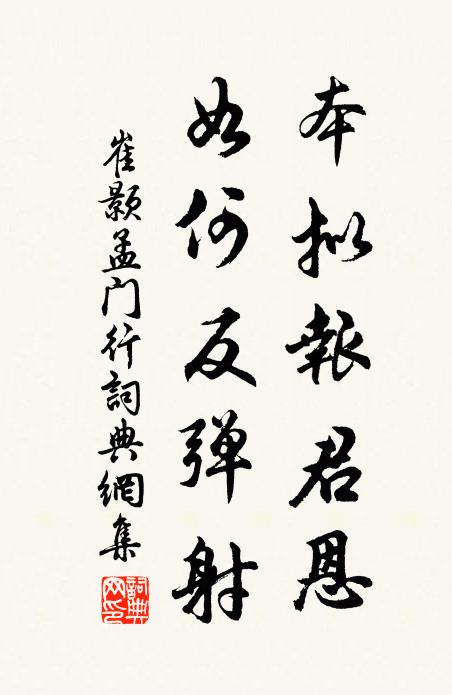 本拟報君恩
如何反弹射
崔颢孟门行詞典網集
詞典网印